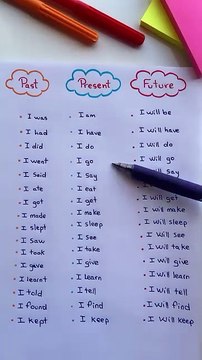 Past Present Future
I was I am I will be
I had I have I will have
I did I do I will do
I went I go I will go
I said I say will say
I ate I eat
I got I get I will get
I made I make I will make
I slept I sleep I will sleep
I saw I see I will see
I took I take I will take
I gave I give I will give
I learnt I learn I will learn
I told I tell I will tell
I found I find I will find
I kept I keep I will keep